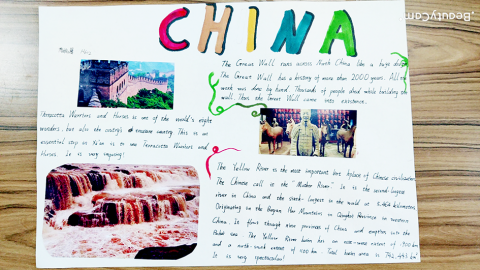 CHINA
BeautyCam.
The Great Wall runs across North China like a huge
The Great Wall has a history of more than 2000 years. All
work was done by hand. Thousands of people died while building the
wall. Thus the Great Wall came into existence.
Terracotta Warriors and Horses is one of the world's eight
wonders, but also the country's treasure
essential stop in Xi'an is to see Terracotta Warriors and
Horses. It is very imposing!
The Yellow River is the most important birthplace of Chinese civilization
The Chinese call it the "Mother River". It is the second-longest
river in China and the sixth-longest in the world at 5,464 kilometers
Originating in the Bayan Har Mountains in Qinghai Province in western
China. It flows through nine provinces of China and empties into the
Bohai sea. The Yellow River basin has an east-west extent of 1,900 km
and a north-south extent of 1100 km. Total basin area is
It is very spectacular!